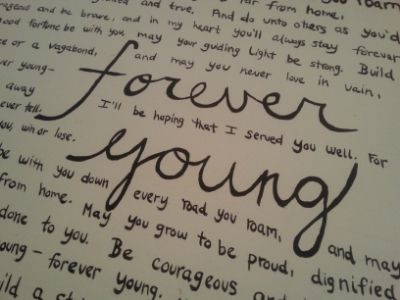 far from home,
and true. And do unto others as you'd
courageous and be brave, and in my heart you'll always stay forever
good fortune be with you, may your guiding light be strong. Build
or a vagabond, and may you never love in vain,
forever
ever young-
away
I'll be hoping that I served you well. For
ever tell.
you, win or lose.
young
be with you down every road you roam,
from home. May you grow to be proud, dignified and may
done to you. Be courageous and
young - forever young.